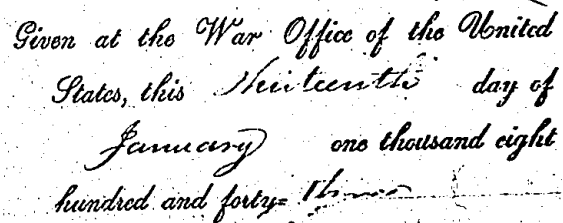 Given at the War Office of the United
States, this Nineteenth day of
January one thousand eight
hundred and forty= three